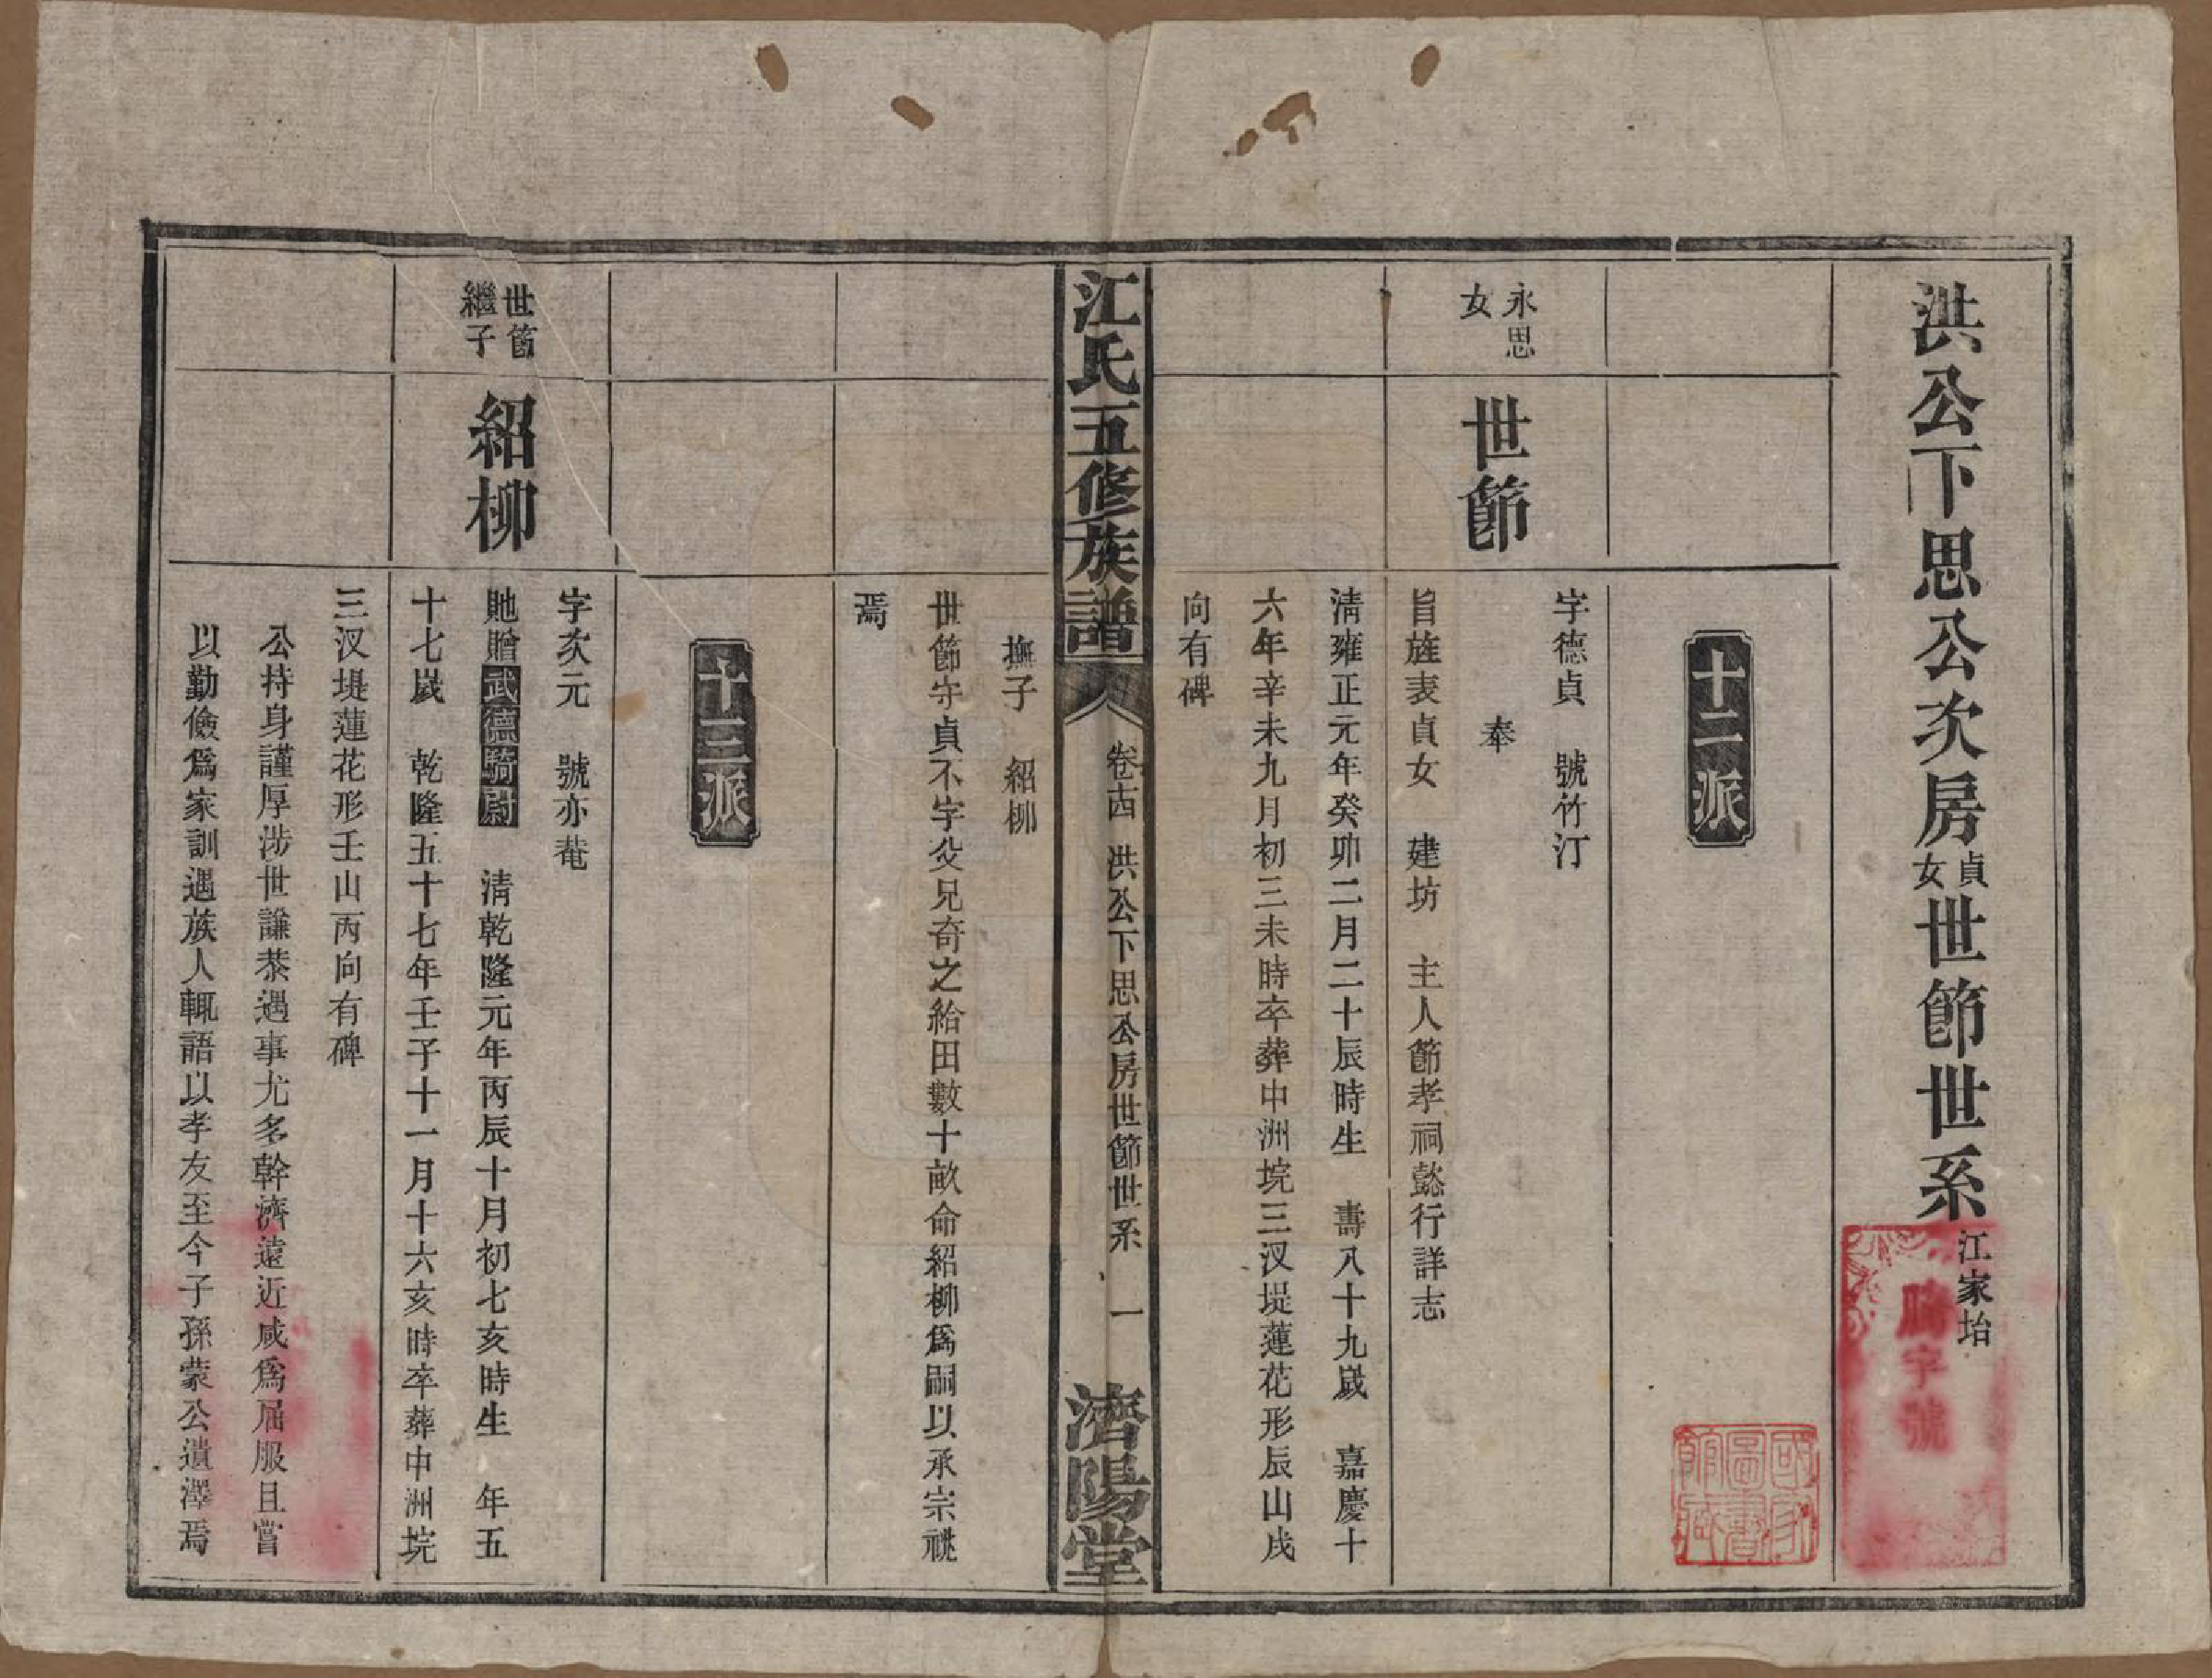 洪公下思公次房貞女世節世系江家坮
勝字號
國家圖書館藏
十二派
永思女
世節
字德貞　號竹汀
奉
旨旌表貞女　建坊　主入節孝祠懿行詳志
清雍正元年癸卯二月二十辰時生　壽八十九歲　嘉慶十
六年辛未九月初三未時卒葬中洲垸三汊堤蓮花形辰山戌
向有碑
江氏五修族譜　卷十四　洪公下思公房世節世系　一　濟陽堂
撫子　紹柳
世節守貞不字父兄奇之給田數十畝命紹柳爲嗣以承宗祧
焉
十三派
世節繼子
紹柳
字次元　號亦菴
貤贈武德騎尉　清乾隆元年丙辰十月初七亥時生　年五
十七歲　乾隆五十七年壬子十一月十六亥時卒葬中洲垸
三汊堤蓮花形壬山丙向有碑
公持身謹厚涉世謙恭遇事尤多幹濟遠近咸爲屈服且嘗
以勤儉爲家訓遇族人輒語以孝友至今子孫蒙公遺澤焉